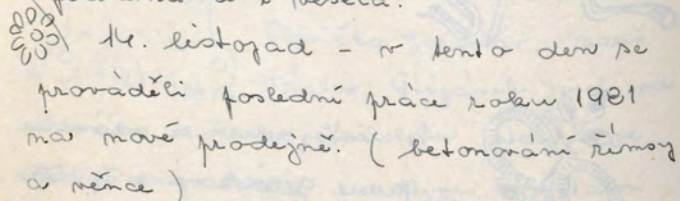 a veselá.
14. listopad - v tento den se
prováděli poslední práce roku 1981
na nové prodejně. ( betonování římsy
a věnce )